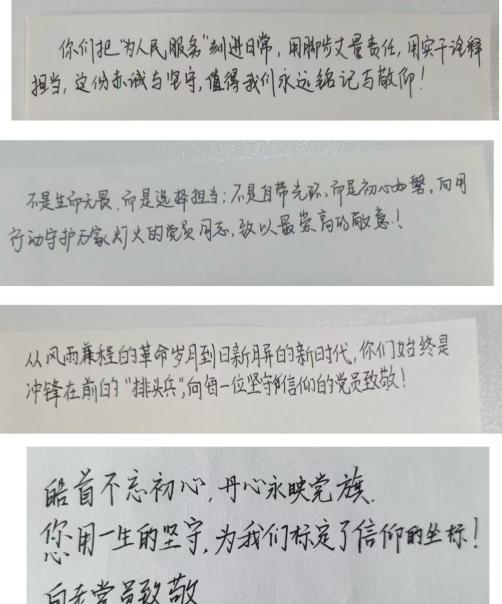 你们把"为人民服务"刻进日常，用脚步丈量责任，用实干诠释
担当，这份赤诚与坚守，值得我们永远铭记与敬仰！
不是生而无畏，而是选择担当；不是自带光环，而是初心如磐。向用
行动守护万家灯火的党员同志，致以最崇高的敬意！
从风雨兼程的革命岁月到日新月异的新时代，你们始终是
冲锋在前的"排头兵"，向每一位坚守信仰的党员致敬！
皓首不忘初心，丹心永映党旗.
您用一生的坚守，为我们标定了信仰的坐标！
向老党员致敬